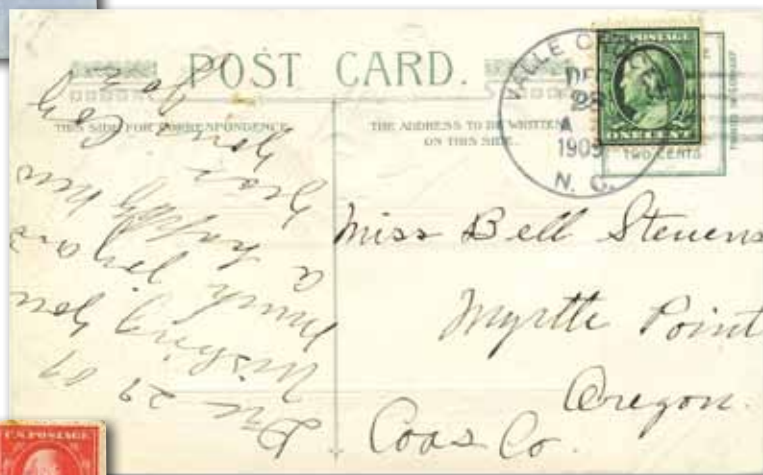 POST CARD.
THIS SIDE FOR CORRESPONDENCE
THE ADDRESS TO BE WRITTEN
ON THIS SIDE.
VALLE C
DEC
28
A
1909
N. C.
U.S. POSTAGE
ONE CENT
TWO CENTS
PRINTED IN GERMANY
Miss Bell Stevens
Myrtle Point
Oregon.
Coos Co.
Dec 29 09
Wishing you
much joy and
a happy new
year
your
U.S. POSTAGE